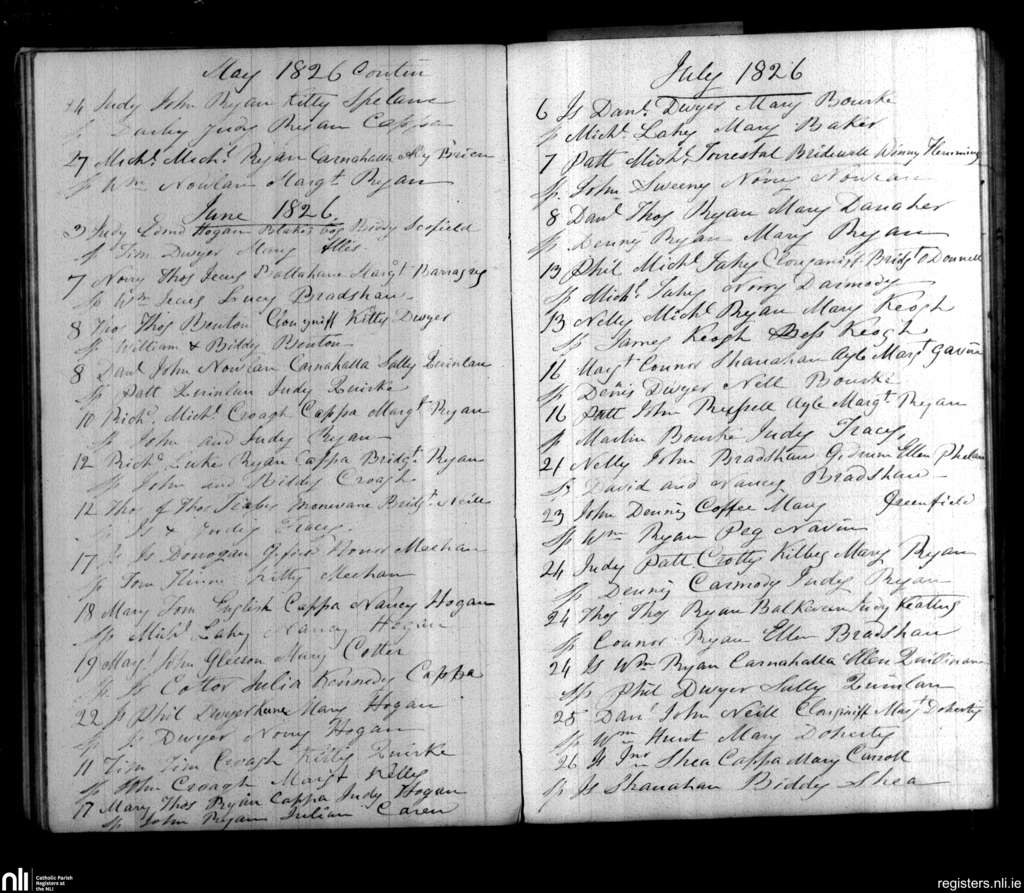 May 1826 Contin
24 Judy John Ryan Kitty Spelane
Sp Darby Judy Ryan Cappa
27 Michl. Michl. Ryan Carnahalla My Brien
Sp Wm Nowlan Margt Ryan
June 1826
3 Judy Edmd Hogan Biddy Scofield
Sp Tim Dwyer Mary Ellis
7 Norry Thos Margt Barragry
Sp Wm Lucy Bradshaw
8 Tho Thos Bonton Clonganiff Kitty Dwyer
Sp William & Biddy Bonton
8 Danl John Nowlan Carnahalla Sally Quinlan
Sp Patt Quinlan Judy Quirke
10 Richd. Michl Croagh Cappa Margt Ryan
Sp John and Judy Ryan
12 Richd Luke Ryan Cappa Bridgt. Ryan
Sp John and Biddy Croagh
12 Tho Thos Bridt. Neill
Js & Judy Tracy
17 Js Donogan Honor Meehan
Sp Tom Kitty Meehan
18 Mary Tom English Cappa Nancy Hogan
Sp Michl Lahy Nancy Hogan
19 Margt John Gleeson Mary Cotter
Sp Js Cottor Julia Kennedy Cappa
22 Js Phil Dwyer Mary Hogan
Sp Js Dwyer Norry Hogan
11 Tim Tim Croagh Kitty Quirke
Sp John Croagh Margt Kelly
17 Mary Thos Ryan Cappa Judy Hogan
Sp John Ryan Julian Caren
July 1826
6 Js Danl. Dwyer Mary Bourke
Sp Michl. Lahy Mary Baker
7 Patt Michl. Forrestal Bridewell Winny Flemming
Sp John Sweeny Nowlan
8 Danl Thos Ryan Mary Danaher
Sp Denny Ryan Mary Ryan
13 Phil Michl Fahy Clonganiff Bridgt O'Donnell
Sp Michl. Fahy Norry Darmody
13 Nelly Michl Ryan Mary Keogh
Sp James Keogh Bess Keogh
16 Margt Connor Shanahan Ayle Margt Gavin
Sp Denis Dwyer Nell Bourke
16 Patt John Ayle Margt. Ryan
Sp Martin Bourke Judy Tracy
21 Nelly John Bradshaw G.Drum Ellen Phelan
Sp David and Nancy Bradshaw
23 John Dennis Coffee Mary Greenfield
Sp Wm Ryan Peg Navin
24 Judy Patt Crotty Kilbeg Mary Ryan
Sp Denny Carmody Judy Ryan
24 Thos Thos Ryan Judy Keating
Sp Connor Ryan Ellen Bradshaw
24 Js Wm Ryan Carnahalla Ellen Quillinan
Sp Phil Dwyer Sally Quinlan
25 Danl John Neill Clonganiff Margt Doherty
Sp Wm Hunt Mary Doherty
26 Js Jno Shea Cappa Mary Carroll
Sp Js Shanahan Biddy Shea
nli Catholic Parish
Registers at
the NLI
registers.nli.ie